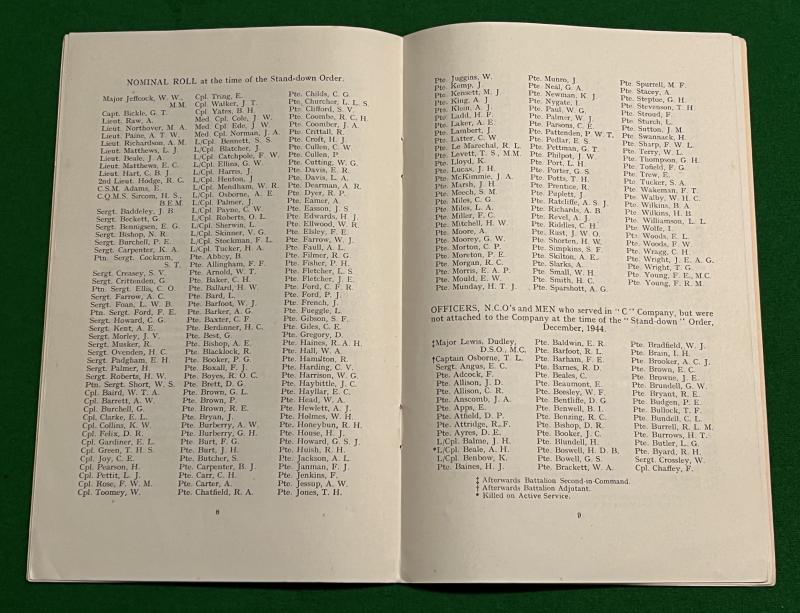 NOMINAL ROLL at the time of the Stand-down Order.
Major Jeffcock, W. W.,
M.M.
Capt. Bickle, G. T.
Lieut. Raw, A.
Lieut. Northover, M. A.
Lieut. Paine, A. T. W.
Lieut. Richardson, A. M.
Lieut. Matthews, L. J.
Lieut. Beale, J. A.
Lieut. Matthews, E. C.
Lieut. Hart, C. B. J.
2nd Lieut. Hodge, R. C.
C.S.M. Adams, E.
C.Q.M.S. Sircom, H. S.,
B.E.M.
Sergt. Baddeley, J. B.
Sergt. Beckett, G.
Sergt. Bennigsen, E. G.
Sergt. Bishop, N. R.
Sergt. Burchell, P. E.
Sergt. Carpenter, K. A.
Ptn. Sergt. Cockram,
S. T.
Sergt. Creasey, S. V.
Sergt. Crittenden, G.
Ptn. Sergt. Ellis, C. O.
Sergt. Farrow, A. C.
Sergt. Foan, L. W. B.
Ptn. Sergt. Ford, F. E.
Sergt. Howard, C. G.
Sergt. Kent, A. E.
Sergt. Morley, J. V.
Sergt. Musker, R.
Sergt. Ovenden, H. C.
Sergt. Padgham, E. H.
Sergt. Palmer, H.
Sergt. Roberts, H. W.
Ptn. Sergt. Short, W. S.
Cpl. Baird, W. T. A.
Cpl. Barrett, A. W.
Cpl. Burchell, G.
Cpl. Clarke, E. L.
Cpl. Collins, K. W.
Cpl. Felix, D. R.
Cpl. Gardiner, E. L.
Cpl. Green, T. H. S.
Cpl. Joy, C. E.
Cpl. Pearson, H.
Cpl. Pettit, L. J.
Cpl. Rose, F. W. M.
Cpl. Toomey, W.
Cpl. Tring, E.
Cpl. Walker, J. T.
Cpl. Yates, B. H.
Med. Cpl. Cole, J. W.
Med. Cpl. Ede, J. W.
Med. Cpl. Norman, J. A.
L/Cpl. Bennett, S. S.
L/Cpl. Blatcher, J.
L/Cpl. Catchpole, F. W.
L/Cpl. Ellins, G. W.
L/Cpl. Harris, J.
L/Cpl. Henton, J.
L/Cpl. Mendham, W. R.
L/Cpl. Osborne, A. E.
L/Cpl. Palmer, J.
L/Cpl. Payne, C. W.
L/Cpl. Roberts, O. L.
L/Cpl. Sherwin, L.
L/Cpl. Skinner, V. G.
L/Cpl. Stockman, F. L.
L/Cpl. Tucker, H. A.
Pte. Abbey, B.
Pte. Allingham, F. F.
Pte. Arnold, W. T.
Pte. Baker, C. H.
Pte. Ballard, H. W.
Pte. Bard, L.
Pte. Barfoot, W. J.
Pte. Barker, A. G.
Pte. Baxter, C. F.
Pte. Berdinner, H. C.
Pte. Best, G.
Pte. Bishop, A. E.
Pte. Blacklock, R.
Pte. Booker, P. G.
Pte. Boxall, F. J.
Pte. Boyes, R. O. C.
Pte. Brett, D. G.
Pte. Brown, G. L.
Pte. Brown, P.
Pte. Brown, R. E.
Pte. Bryan, J.
Pte. Burberry, A. W.
Pte. Burberry, G. H.
Pte. Burt, F. G.
Pte. Burt, J. H.
Pte. Butcher, S.
Pte. Carpenter, B. J.
Pte. Carr, C. H.
Pte. Carter, A.
Pte. Chatfield, R. A.
Pte. Childs, C. G.
Pte. Churcher, L. L. S.
Pte. Clifford, S. V.
Pte. Coombe, R. C. H.
Pte. Coomber, J. A.
Pte. Crittall, R.
Pte. Croft, H. J.
Pte. Cullen, C. W.
Pte. Cullen, P.
Pte. Cutting, W. G.
Pte. Davis, E. R.
Pte. Davis, L. A.
Pte. Dearman, A. R.
Pte. Dyer, R. P.
Pte. Eamer, A.
Pte. Easson, J. S.
Pte. Edwards, H. J.
Pte. Ellwood, W. R.
Pte. Elsley, F. E.
Pte. Farrow, W. J.
Pte. Faull, A. L.
Pte. Filmer, R. G.
Pte. Fisher, P. H.
Pte. Fletcher, L. S.
Pte. Fletcher, J. E.
Pte. Ford, C. F. R.
Pte. Ford, P. J.
Pte. French, J.
Pte. Fueggle, L.
Pte. Gibson, S. F.
Pte. Giles, C. E.
Pte. Gregory, D.
Pte. Haines, R. A. H.
Pte. Hall, W. A.
Pte. Hamilton, R.
Pte. Harding, C. V.
Pte. Harrison, W. G.
Pte. Haybittle, J. C.
Pte. Hayllar, E. C.
Pte. Head, W. A.
Pte. Hewlett, A. J.
Pte. Holmes, W. H.
Pte. Honeybun, R. H.
Pte. House, H. J.
Pte. Howard, G. S. J.
Pte. Huish, R. H.
Pte. Jackson, A. L.
Pte. Janman, F. J.
Pte. Jenkins, F.
Pte. Jessup, A. W.
Pte. Jones, T. H.
8
Pte. Juggins, W.
Pte. Kemp, J.
Pte. Kensett, M. J.
Pte. King, A. J.
Pte. Klein, A. J.
Pte. Ladd, H. F.
Pte. Laker, A. E.
Pte. Lambert, J.
Pte. Latter, C. W.
Pte. Le Marechal, R. L.
Pte. Levett, T. S., M.M.
Pte. Lloyd, K.
Pte. Lucas, J. H.
Pte. McKimmie, J. A.
Pte. Marsh, J. H.
Pte. Meech, S. M.
Pte. Miles, C. G.
Pte. Miles, L. A.
Pte. Miller, F. C.
Pte. Mitchell, H. W.
Pte. Moore, A.
Pte. Moorey, G. W.
Pte. Morton, C. P.
Pte. Moreton, P. E.
Pte. Morgan, R. C.
Pte. Morris, E. A. P.
Pte. Mould, E. W.
Pte. Munday, H. T. J.
Pte. Munro, J.
Pte. Neal, G. A.
Pte. Newman, K. J.
Pte. Nygate, I.
Pte. Paul, W. G.
Pte. Palmer, W. J.
Pte. Parsons, C. E.
Pte. Pattenden, P. W. T.
Pte. Pedlar, E. S.
Pte. Pettman, G. T.
Pte. Philpot, J. W.
Pte. Port, L. H.
Pte. Porter, G. S.
Pte. Potts, T. H.
Pte. Prentice, R.
Pte. Puplett, J.
Pte. Ratcliffe, A. S. J.
Pte. Richards, A. B.
Pte. Revel, A. J.
Pte. Riddles, C. H.
Pte. Rust, J. W. O.
Pte. Shorten, H. W.
Pte. Simpkins, S. F.
Pte. Skilton, A. E.
Pte. Slarks, A.
Pte. Small, W. H.
Pte. Smith, H. C.
Pte. Sparshott, A. G.
Pte. Spurrell, M. F.
Pte. Stacey, A.
Pte. Steptoe, G. H.
Pte. Stevenson, T. H.
Pte. Stroud, F.
Pte. Sturch, L.
Pte. Sutton, J. M.
Pte. Swannack, H.
Pte. Sharp, F. W. L.
Pte. Terry, W. L.
Pte. Thompson, G. H.
Pte. Tofield, F. G.
Pte. Trew, E.
Pte. Tucker, S. A.
Pte. Wakeman, F. T.
Pte. Walby, W. H. C.
Pte. Wilkins, B. A.
Pte. Wilkins, H. B.
Pte. Williamson, L. L.
Pte. Wolfe, I.
Pte. Woods, E. L.
Pte. Woods, F. W.
Pte. Wragg, C. H.
Pte. Wright, J. E. A. G.
Pte. Wright, T. G.
Pte. Young, F. E., M.C.
Pte. Young, F. R. M.
OFFICERS, N.C.O's and MEN who served in "C" Company, but were
not attached to the Company at the time of the "Stand-down" Order,
December, 1944.
‡Major Lewis, Dudley,
D.S.O., M.C.
†Captain Osborne, T. L.
Sergt. Angus, E. C.
Pte. Adcock, F.
Pte. Allison, J. D.
Pte. Allison, C. R.
Pte. Anscomb, J. A.
Pte. Apps, E.
Pte. Atfield, D. P.
Pte. Attridge, R., F.
Pte. Ayres, D. E.
L/Cpl. Balme, J. H.
*L/Cpl. Beale, A. H.
L/Cpl. Benbow, K.
Pte. Baines, H. J.
Pte. Baldwin, E. R.
Pte. Barfoot, R. L.
Pte. Barham, E. A.
Pte. Barnes, R. D.
Pte. Beales, C.
Pte. Beaumont, E.
Pte. Beesley, W. F.
Pte. Bentliffe, D. G.
Pte. Benwell, B. I.
Pte. Benzing, R. C.
Pte. Bishop, D. R.
Pte. Booker, J. C.
Pte. Blundell, H.
Pte. Boswell, H. D. B.
Pte. Bowell, G. S.
Pte. Brackett, W. A.
Pte. Bradfield, W. J.
Pte. Brain, I. H.
Pte. Brooker, A. C. J.
Pte. Brown, E. C.
Pte. Browne, J. E.
Pte. Brundell, G. W.
Pte. Bryant, R. E.
Pte. Budgen, P. E.
Pte. Bullock, T. F.
Pte. Bundell, C. L.
Pte. Burrell, R. L. M.
Pte. Burrows, H. T.
Pte. Butler, L. G.
Pte. Byard, R. H.
Sergt. Crossley, W.
Cpl. Chaffey, F.
‡ Afterwards Battalion Second-in-Command.
† Afterwards Battalion Adjutant.
* Killed on Active Service.
9